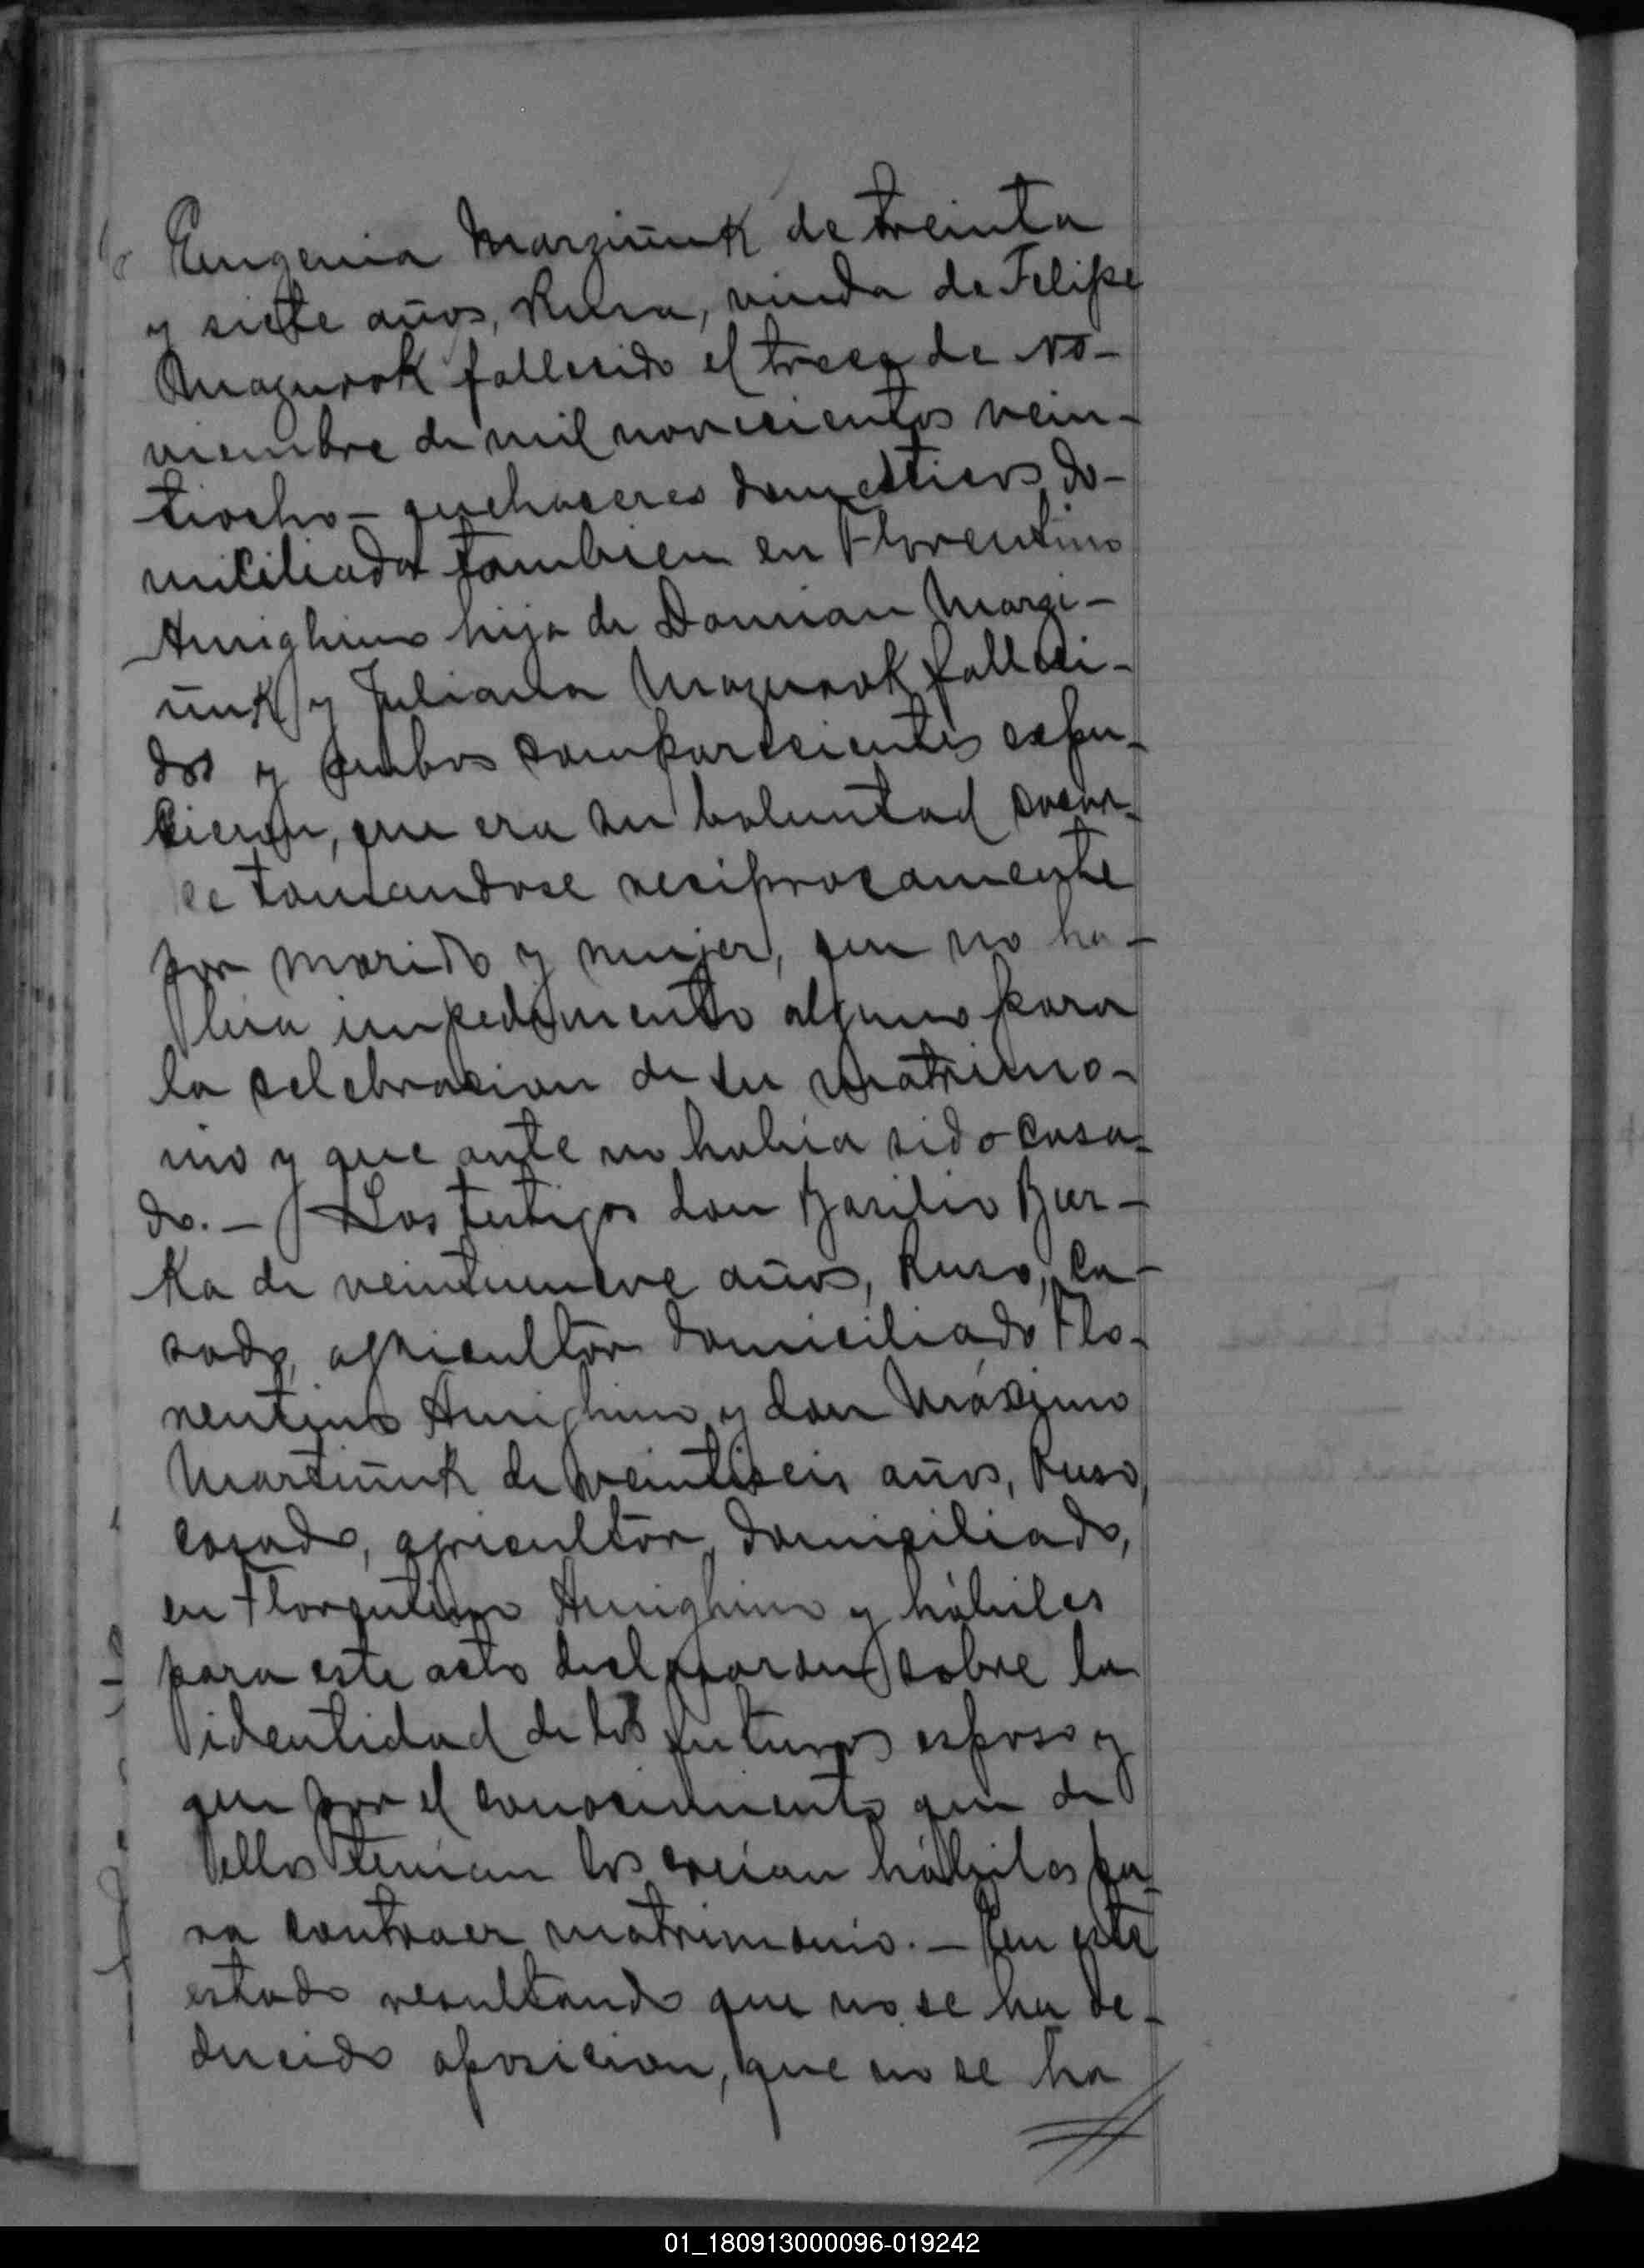 Eugenia Marziñuk de treinta
y siete años, Rusa, viuda de Felipe
Mazurok fallecido el trece de No-
viembre de mil novecientos vein-
tiocho - quehaceres domesticos, do-
miciliada tambien en Florentino
Ameghino hija de Damian Marzi-
ñuk y Juliana Mazurok falleci-
dos y ambos comparecientes expu-
cieron, que era su boluntad casar-
ce tomandose reciprocamente
por marido y mujer, que no ha-
bia impedimento alguno para
la selebracion de su matrimo-
nio y que ante no habia sido casa-
do. - Los testigos don Basilio Bur-
ka de veintinueve años, Ruso, ca-
sado, agricultor domiciliado Flo-
rentino Ameghino y don Máximo
Martiñuk de veintiseis años, Ruso,
casado, agricultor, domiciliado,
en Florentino Ameghino y hábiles
para este acto declararon sobre la
identidad de los futuros esposo y
que por el conocimiento que de
ellos tenian los creian hábiles pa-
ra contraer matrimonio. - En este
estado resultando que no se ha de-
ducido oposicion, que no se ha
01_180913000096-019242